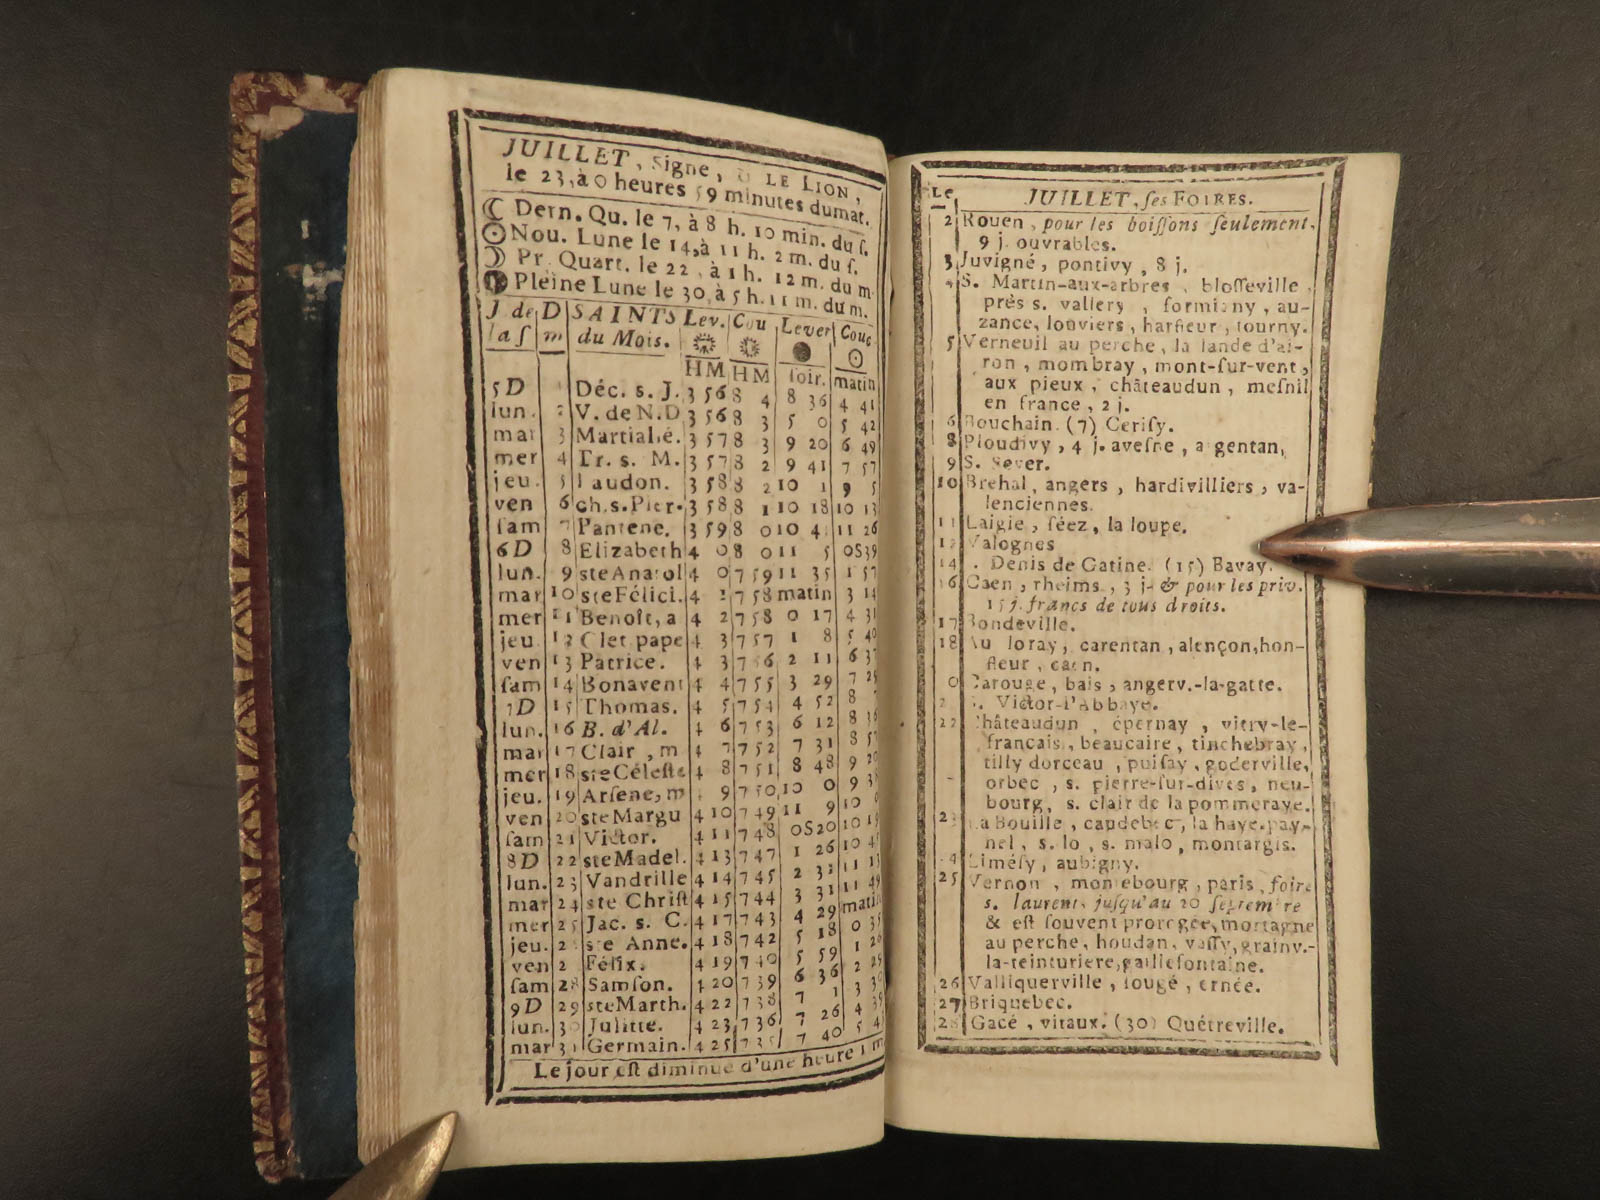 JUILLET, Signe, ♌ LE LION,
le 23, à 0 heures 59 minutes du mat.
Dern. Qu. le 7, à 8 h. 10 min. du ſ.
Nou. Lune le 14, à 11 h. 2 m. du ſ.
Pr. Quart. le 22, à 1 h. 12 m. du m
Pleine Lune le 30, à 5 h. 11 m. du m.
J. de la ſ D m SAINTS du Mois. Lev. Cou Lever Couc
H M H M ſoir. matin
5 D 1 Déc. s. J. 3 56 8 4 8 36 4 41
lun. 2 V. de N. D 3 56 8 3 5 0 5 42
mar 3 Martialé. 3 57 8 3 9 20 6 49
mer 4 Tr. s. M. 3 57 8 2 9 41 7 57
jeu. 5 Laudon. 3 58 8 2 10 1 9 5
ven 6 ch. s. Pier. 3 58 8 1 10 18 10 13
ſam 7 Pantene. 3 59 8 0 10 41 11 26
6 D 8 Elizabeth 4 0 8 0 11 5 0S39
lun. 9 ste Anatol 4 0 7 59 11 35 1 57
mar 10 ste Félici. 4 1 7 58 matin 3 14
mer 11 Benoît, a 4 2 7 58 0 17 4 31
jeu. 12 Clet pape 4 3 7 57 1 8 5 40
ven 13 Patrice. 4 3 7 56 2 11 6 37
ſam 14 Bonavent 4 4 7 55 3 29 7 25
7 D 15 Thomas. 4 5 7 54 4 52 8
lun. 16 B. d'Al. 4 6 7 53 6 12 8 36
mar 17 Clair, m 4 7 7 52 7 31 8 57
mer 18 ste Céleſte 4 8 7 51 8 48 9 20
jeu. 19 Arſene, m 9 7 50 10 0 9 38
ven 20 ste Margu 4 10 7 49 11 9 10
ſam 21 Victor. 4 11 7 48 0S20 10 19
8 D 22 ste Madel. 4 13 7 47 1 26 10 4
lun. 23 Vandrille 4 14 7 45 2 32 11 13
mar 24 ste Chriſt 4 15 7 44 3 31 11 49
mer 25 Jac. s. C. 4 17 7 43 4 29 matin
jeu. 2 ste Anne. 4 18 7 42 5 18 0 35
ven 2 Félix. 4 19 7 40 5 59 1 26
ſam 28 Samſon. 4 20 7 39 6 36 2 29
9 D 29 ste Marth. 4 22 7 38 7 1 3 30
lun. 30 Julitte. 4 23 7 36 7 26 4 39
mar 31 Germain. 4 25 7 35 7 40 5 4
Le jour eſt diminué d'une heure 1 m
Le JUILLET, ſes FOIRES.
2 Rouen, pour les boiſſons ſeulement,
9 j. ouvrables.
3 Juvigné, pontivy, 8 j.
4 S. Martin-aux-arbres, bloſſeville,
près s. vallery, formigny, au-
zance, louviers, harfleur, tourny.
5 Verneuil au perche, la lande d'ai-
ron, mombray, mont-ſur-vent,
aux pieux, châteaudun, meſnil
en france, 2 j.
6 Bouchain. (7) Ceriſy.
8 Ploudivy, 4 j. aveſne, argentan,
9 S. Sever.
10 Brehal, angers, hardivilliers, va-
lenciennes.
11 Laigle, ſéez, la loupe.
12 Valognes
14 . Denis de Gatine. (15) Bavay.
16 Caen, rheims, 3 j. & pour les priv.
15 j. francs de tous droits.
17 Bondeville.
18 Au loray, carentan, alençon, hon-
fleur, caen.
0 Carouge, bais, angerv.-la-gatte.
2 S. Victor-l'Abbaye.
22 Châteaudun, épernay, vitry-le-
français, beaucaire, tinchebray,
tilly dorceau, puiſay, goderville,
orbec, s. pierre-ſur-dives, neu-
bourg, s. clair de la pommeraye.
23 La Bouille, caudebec, la haye-pay-
nel, s. lo, s. malo, montargis.
4 Liméſy, aubigny.
25 Vernon, montebourg, paris, foire
s. laurent, juſqu'au 20 ſeptembre
& eſt ſouvent prorogée, mortagne
au perche, houdan, vaſſy, grainv.-
la-teinturiere, gaillefontaine.
26 Valliquerville, lougé, ernée.
27 Briquebec.
28 Gacé, vitaux. (30) Quétreville.